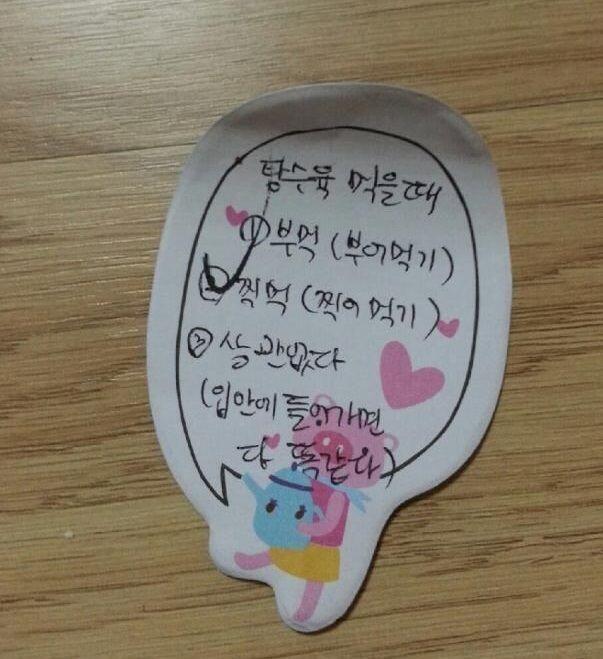 탕수육 먹을때
① 부먹 (부어먹기)
② 찍먹 (찍어 먹기)
③ 상관없다
(입안에 들어가면
다 똑같다)